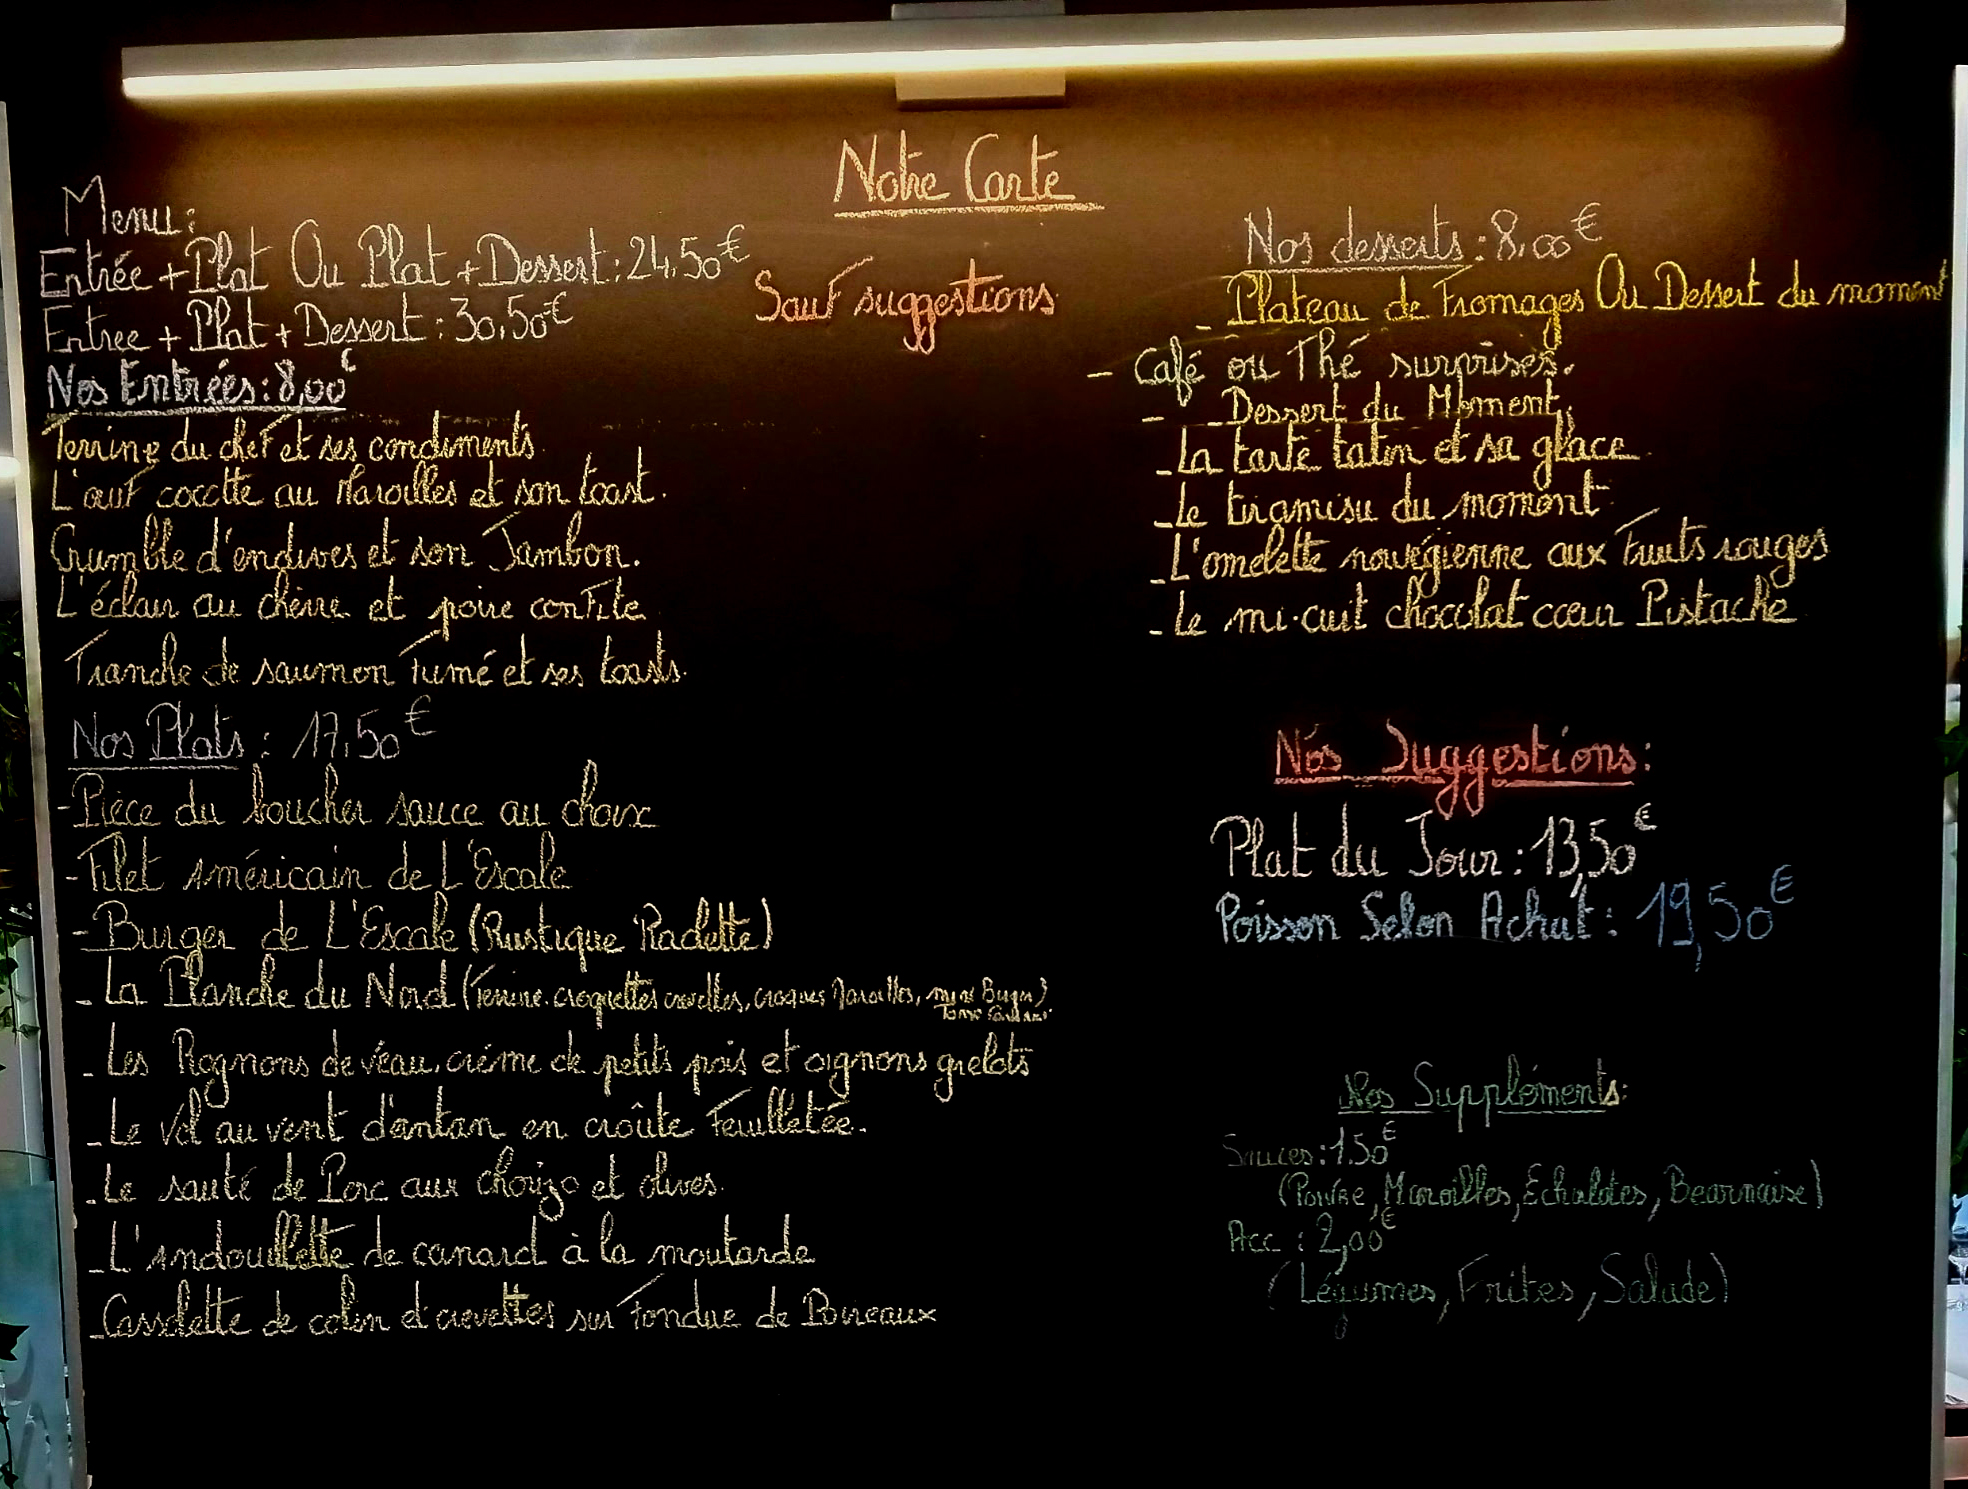 Notre Carte
Menu:
Entrée + Plat Ou Plat + Dessert: 24,50€
Entree + Plat + Dessert: 30,50€
Sauf suggestions
Nos Entrées: 8,00€
Terrine du chef et ses condiments
L'œuf cocotte au Maroilles et son toast.
Crumble d'endives et son Jambon.
L'éclair au chèvre et poire confite
Tranche de saumon fumé et ses toasts.
Nos Plats: 17,50€
- Pièce du boucher sauce au choix
- Filet Américain de L'Escale
- Burger de L'Escale (Rustique Raclette)
- La Planche du Nord (Terrine, croquettes crevettes, croques Maroilles, mini Burger)
- Les Rognons de veau, crème de petits pois et oignons grelots
- Le vol au vent d'antan en croûte feuilletée.
- Le sauté de Porc aux chorizo et olives.
- L'Andouillette de canard à la moutarde
- Cassolette de colin et crevettes sur fondue de Poireaux
Nos desserts: 8,00€
- Plateau de fromages Ou Dessert du moment
- Café ou Thé surprises.
- - Dessert du Moment,
- La tarte tatin et sa glace
- Le tiramisu du moment
- L'omelette norvégienne aux fruits rouges
- Le mi-cuit chocolat cœur Pistache
Nos Suggestions:
Plat du Jour: 13,50€
Poisson Selon Achat: 19,50€
Nos Suppléments:
Sauces: 1.50€
(Poivre, Maroilles, Echalotes, Bearnaise)
Acc: 2,00€
(Légumes, Frites, Salade)